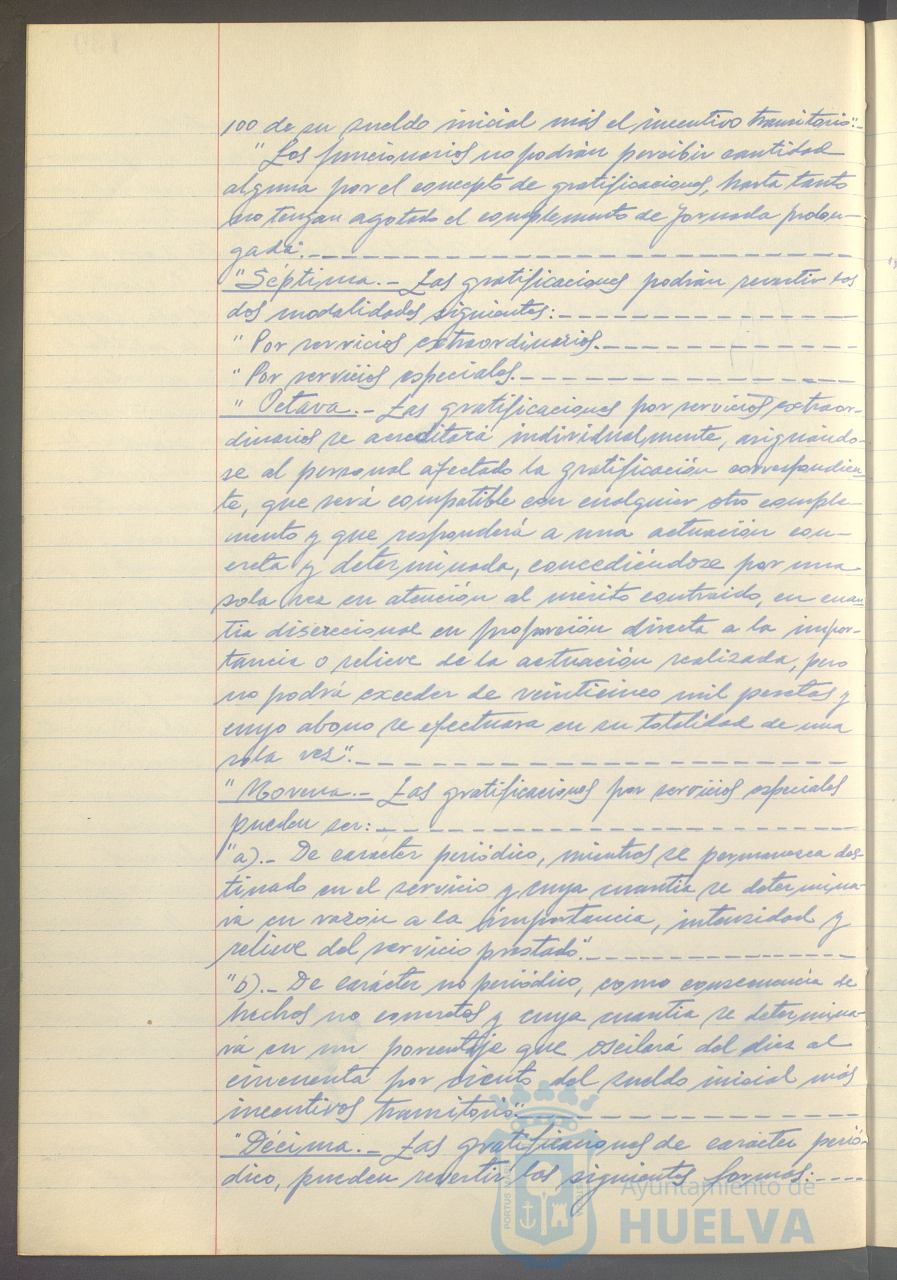 100 de su sueldo inicial más el incentivo transitorio".-
" Los funcionarios no podrán percibir cantidad
alguna por el concepto de gratificaciones, hasta tanto
no tengan agotado el complemento de jornada prolon-
gada".
"Séptima.- Las gratificaciones podrán revestir las
dos modalidades siguientes:
" Por servicios extraordinarios.
" Por servicios especiales.
" Octava.- Las gratificaciones por servicios extraor-
dinarios se acreditará individualmente, asignándo-
se al personal afectado la gratificación correspondien-
te, que será compatible con cualquier otro comple-
mento y que responderá a una actuación con-
creta y determinada, concediéndose por una
sola vez en atención al mérito contraido, en cuan-
tia discreccional en proporción directa a la impor-
tancia o relieve de la actuación realizada, pero
no podrá exceder de veinticinco mil pesetas y
cuyo abono se efectuara en su totalidad de una
sola vez".
" Novena.- Las gratificaciones por servicios especiales
pueden ser:
"a).- De carácter periódico, mientras se permanezca des-
tinado en el servicio y cuya cuantia se determina-
rá en razón a la importancia, intensidad y
relieve del servicio prestado".
"b).- De carácter no periódico, como consecuencia de
hechos no concretos y cuya cuantia se determina-
rá en un porcentaje que oscilará del diez al
cincuenta por ciento del sueldo inicial más
incentivos transitorio".
"Décima.- Las gratificaciones de carácter perió-
dico, pueden revestir las siguientes formas:
Ayuntamiento de
HUELVA